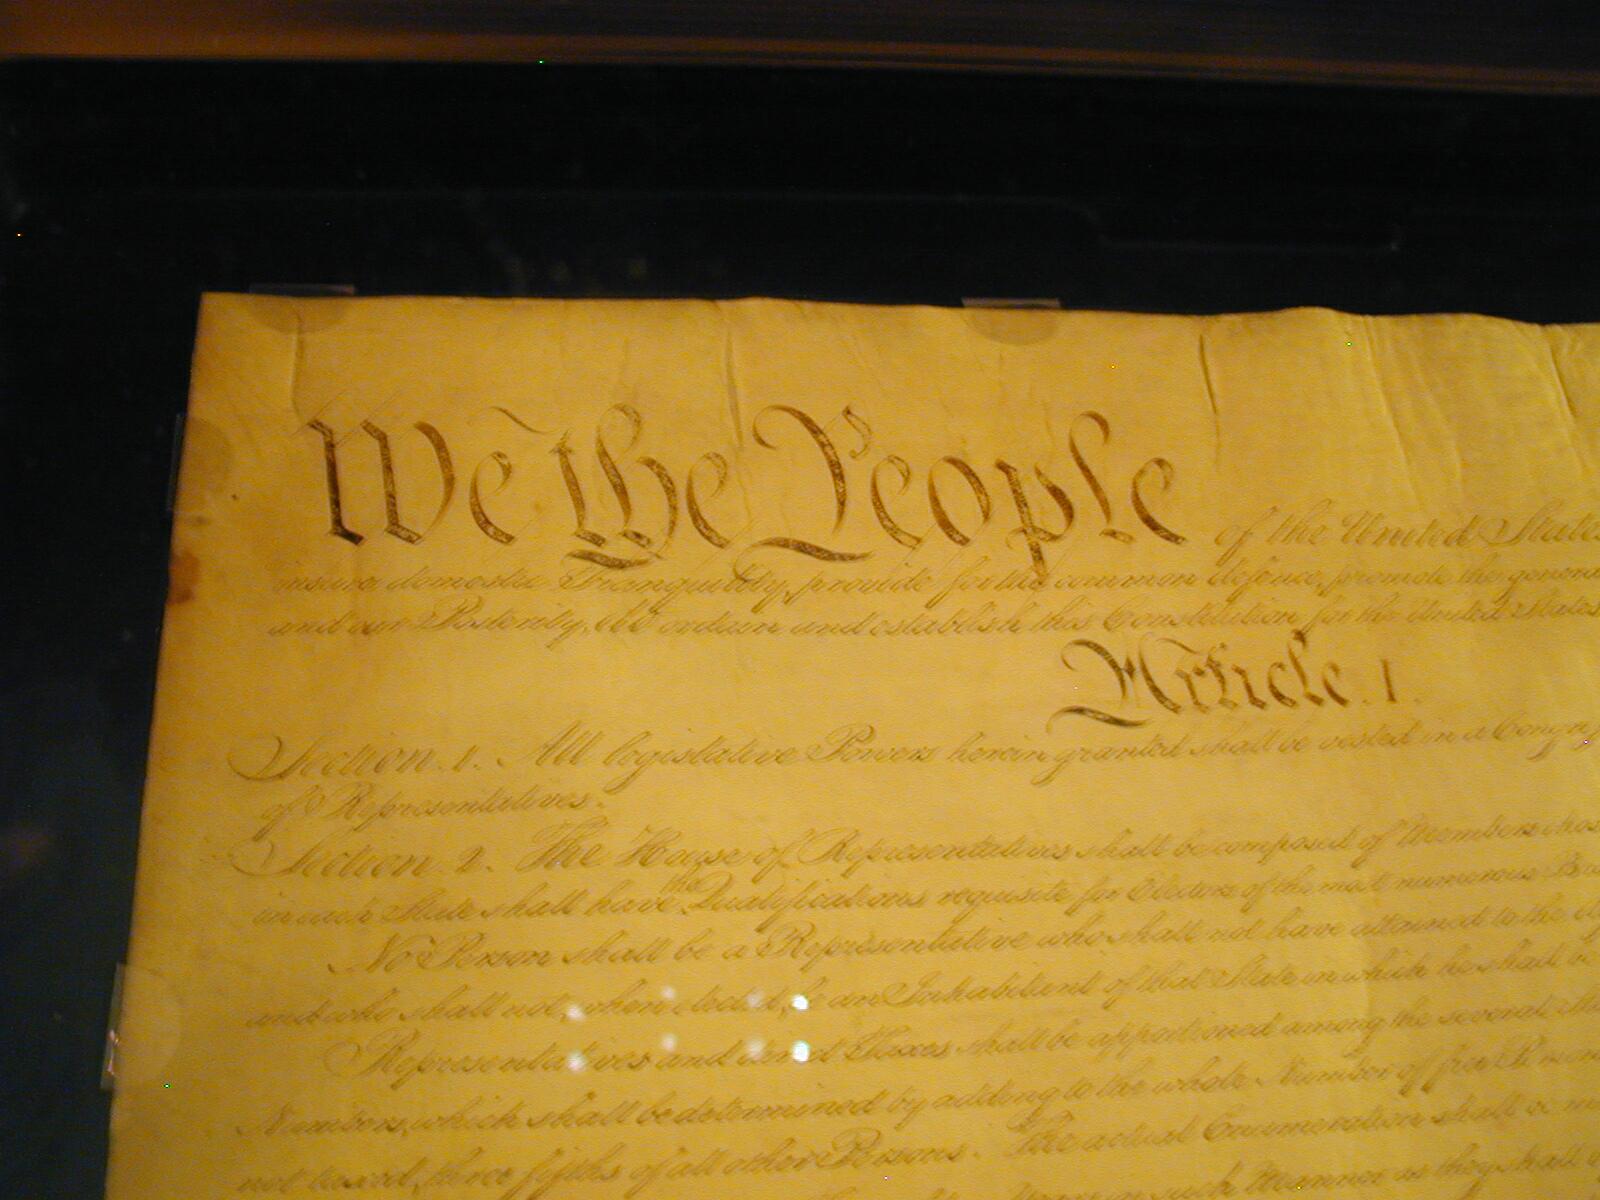 We the People of the United States
insure domestic Tranquility, provide for the common defence, promote the general
and our Posterity, do ordain and establish this Constitution for the United States
Article. I.
Section. 1. All legislative Powers herein granted shall be vested in a Congr
of Representatives.
Section. 2. The House of Representatives shall be composed of Members chos
in each State shall have the Qualifications requisite for Electors of the most numerous Br
No Person shall be a Representative who shall not have attained to the Ag
and who shall not, when elected, be an Inhabitant of that State in which he shall b
Representatives and direct Taxes shall be apportioned among the several Sta
Numbers, which shall be determined by adding to the whole Number of free Person
not taxed, three fifths of all other Persons. The actual Enumeration shall be m
in such Manner as they shall